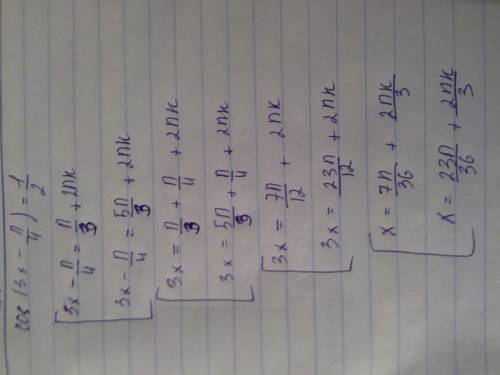 cos (3x - π/4) = 1/2
3x - π/4 = π/3 + 2πk
3x - π/4 = 5π/3 + 2πk
3x = π/3 + π/4 + 2πk
3x = 5π/3 + π/4 + 2πk
3x = 7π/12 + 2πk
3x = 23π/12 + 2πk
x = 7π/36 + 2πk/3
x = 23π/36 + 2πk/3